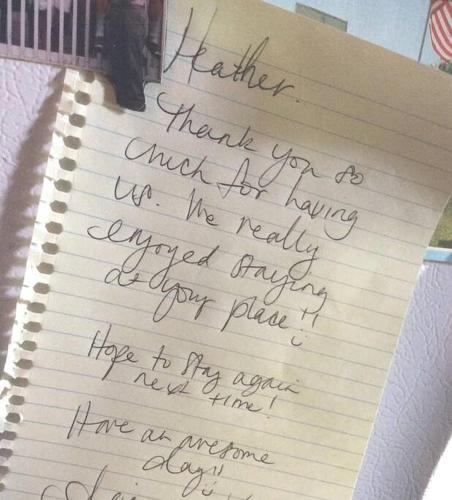 Heather.
Thank you so
much for having
us. We really
enjoyed staying
at your place!!
Hope to stay again
next time!
Have an awesome
day!!